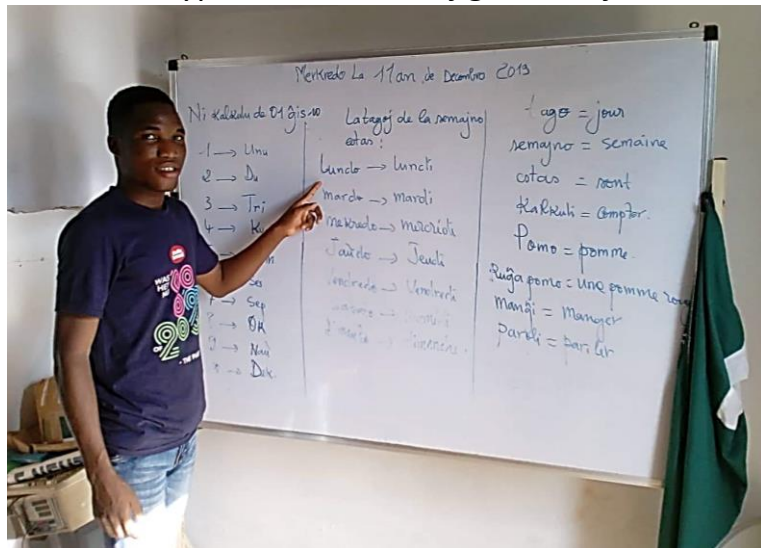 Merkredo La 11an de Decembro 2019
Ni Kalkulu de 01 ĝis 10
1 → Unu
2 → Du
3 → Tri
4 → Ku
Ses
→ Sep
→ OK
9 → Naŭ
→ Dek
La tagoj de la semajno
estas :
Lundo → lundi
mardo → mardi
mekredo → mercredi
Ĵaŭdo → Jeudi
Vendredo → Vendredi
tago = jour
semajno = semaine
estas = sont
Kalkuli = compter.
Pomo = pomme.
Ruĝa pomo = une pomme
manĝi = manger
paroli = parler